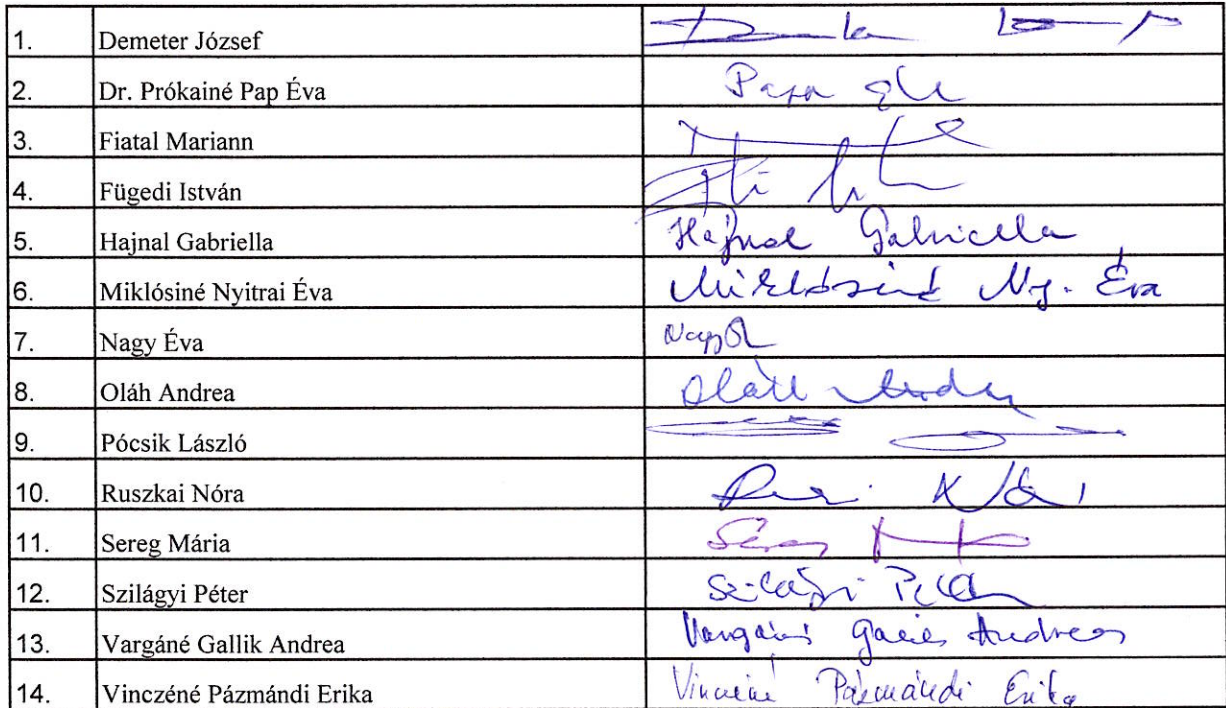 1. Demeter József
2. Dr. Prókainé Pap Éva
3. Fiatal Mariann
4. Fügedi István
5. Hajnal Gabriella Hajnal Gabriella
6. Miklósiné Nyitrai Éva Miklósiné Ny. Éva
7. Nagy Éva Nagy
8. Oláh Andrea Oláh
9. Pócsik László
10. Ruszkai Nóra
11. Sereg Mária
12. Szilágyi Péter Szilágyi
13. Vargáné Gallik Andrea Vargáné Andrea
14. Vinczéné Pázmándi Erika Vinczéné Pázmándi Erika